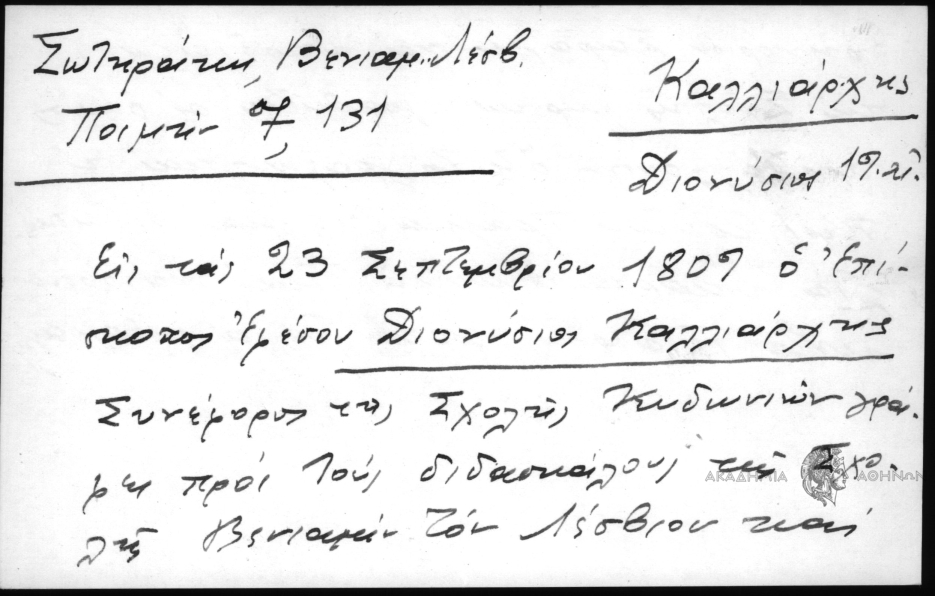 Σωτηράκη, Βενιαμ. Λέσβ.
Ποιμήν 7, 131
Καλλιάρχης
Διονύσιος 19. αἰ.
Εἰς τάς 23 Σεπτεμβρίου 1809 ὁ Ἐπί-
σκοπος Ἐφέσου Διονύσιος Καλλιάρχης
Συνέφορος τῆς Σχολῆς Κυδωνιῶν γρά-
φει πρός τούς διδασκάλους τῆς Σχο-
λῆς Βενιαμίν τόν Λέσβιον καί
ΑΚΑΔΗΜΙΑ ΑΘΗΝΩΝ